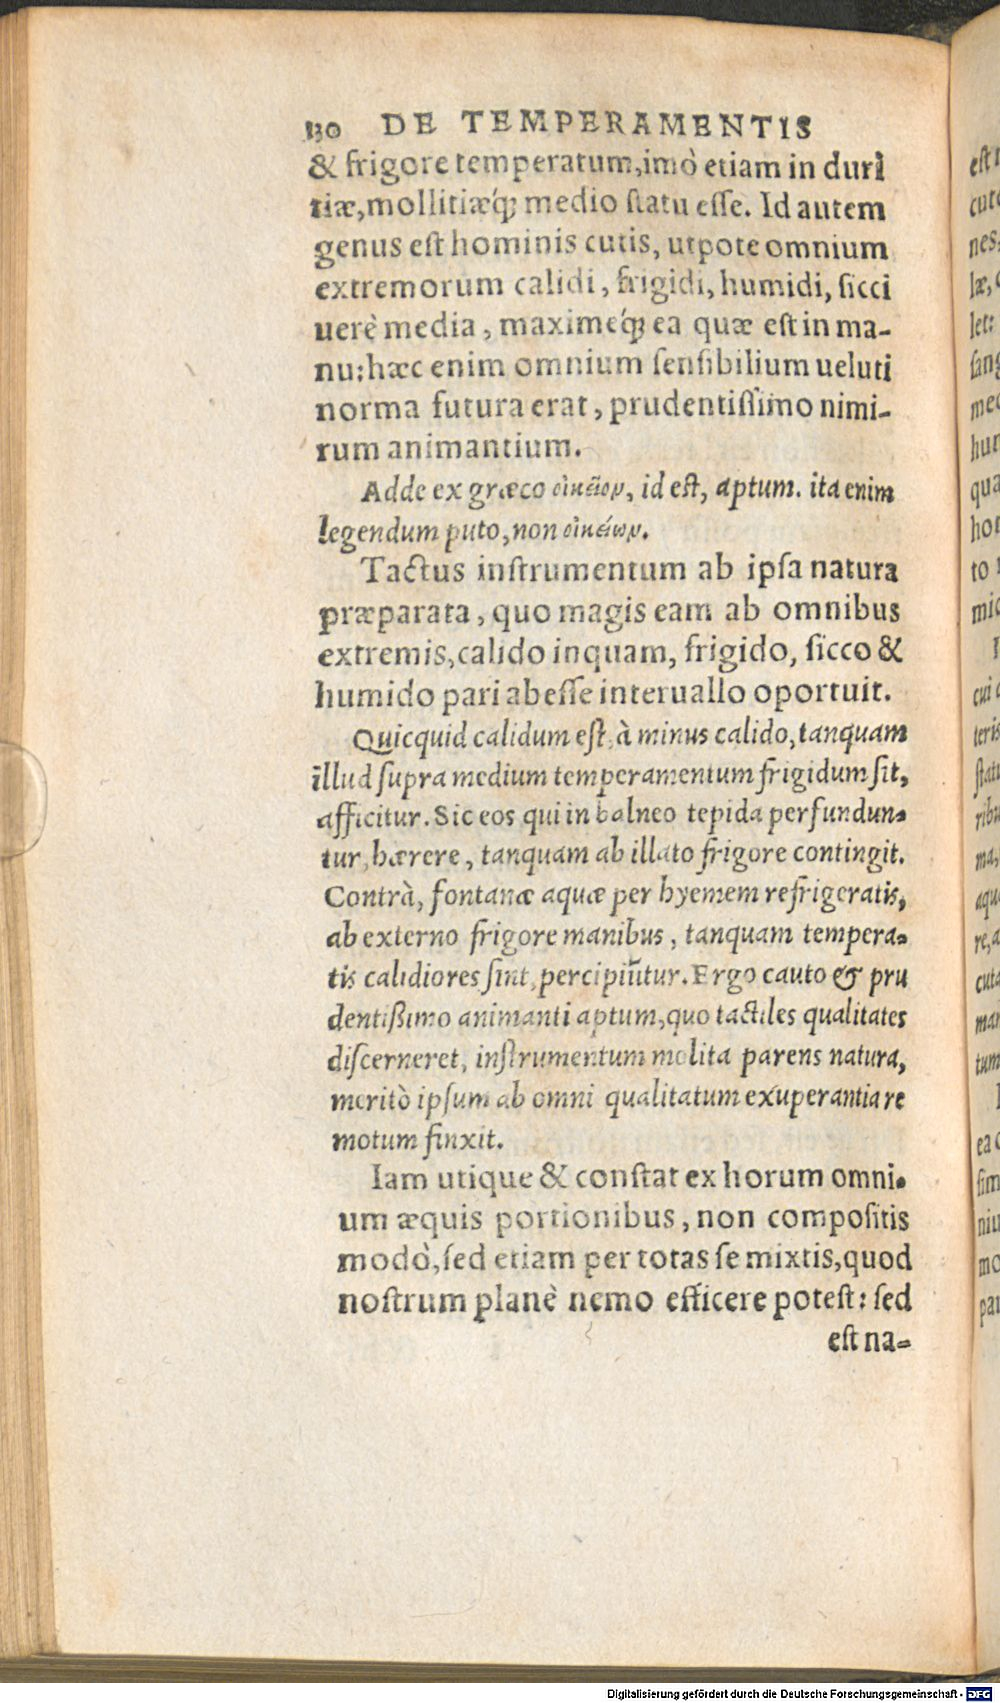 130 DE TEMPERAMENTIS
& frigore temperatum, imò etiam in duri
tiæ, mollitiæq́; medio ſtatu eſſe. Id autem
genus eſt hominis cutis, utpote omnium
extremorum calidi, frigidi, humidi, ſicci
uerè media, maximeq́; ea quæ eſt in ma-
nu: hæc enim omnium ſenſibilium ueluti
norma futura erat, prudentiſsimo nimi-
rum animantium.
Adde ex græco οἰκεῖον, id eſt, aptum. ita enim
legendum puto, non οἰκείων.
Tactus inſtrumentum ab ipſa natura
præparata, quo magis eam ab omnibus
extremis, calido inquam, frigido, ſicco &
humido pari abeſſe interuallo oportuit.
Quicquid calidum eſt, à minus calido, tanquam
illud ſupra medium temperamentum frigidum ſit,
afficitur. Sic eos qui in balneo tepida perfundun-
tur, hærere, tanquam ab illato frigore contingit.
Contrà, fontanæ aquæ per hyemem refrigeratis,
ab externo frigore manibus, tanquam tempera-
tis calidiores ſint, percipiũtur. Ergo cauto & pru
dentißimo animanti aptum, quo tactiles qualitates
diſcerneret, inſtrumentum molita parens natura,
meritò ipſum ab omni qualitatum exuperantia re
motum finxit.
Iam utique & conſtat ex horum omni-
um æquis portionibus, non compoſitis
modò, ſed etiam per totas ſe mixtis, quod
noſtrum planè nemo efficere poteſt: ſed
eſt na-
Digitalisierung gefördert durch die Deutsche Forschungsgemeinschaft - DFG